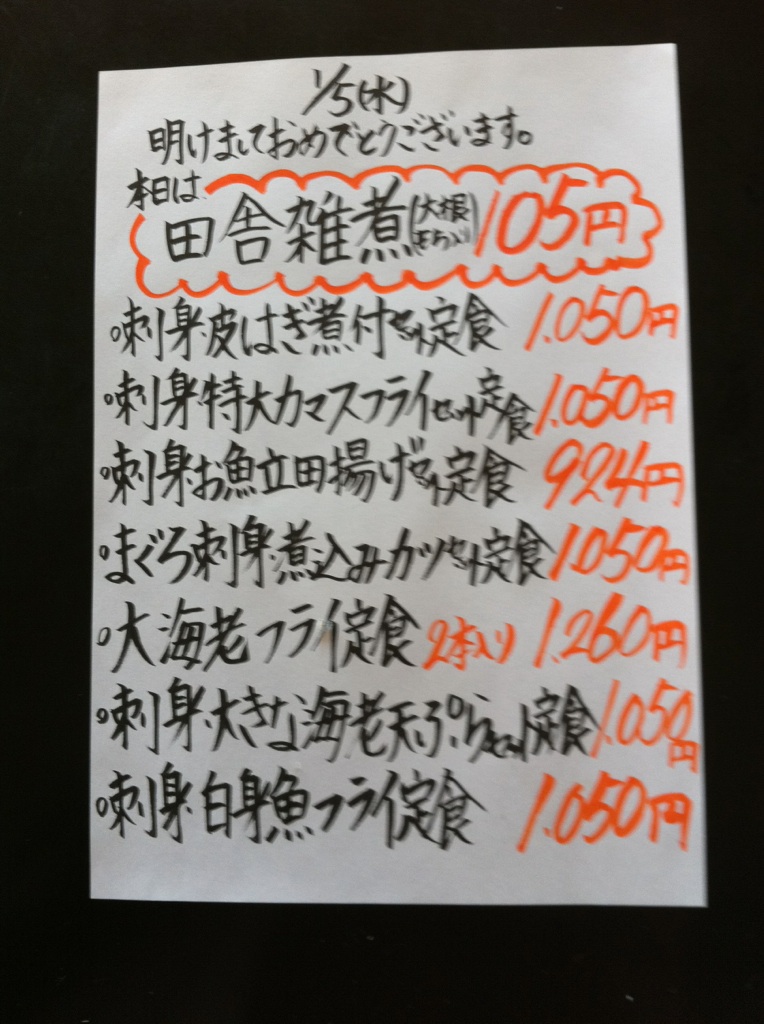 1/5(水)
明けましておめでとうございます。
本日は
田舎雑煮(大根もち入り)105円
。刺身皮はぎ煮付セット定食 1.050円
。刺身特大カマスフライセット定食 1.050円
。刺身お魚立田揚げセット定食 924円
。まぐろ刺身煮込みカツセット定食 1.050円
。大海老フライ定食 2本入り 1.260円
。刺身大きな海老天ぷらセット定食 1.050円
。刺身白身魚フライ定食 1.050円